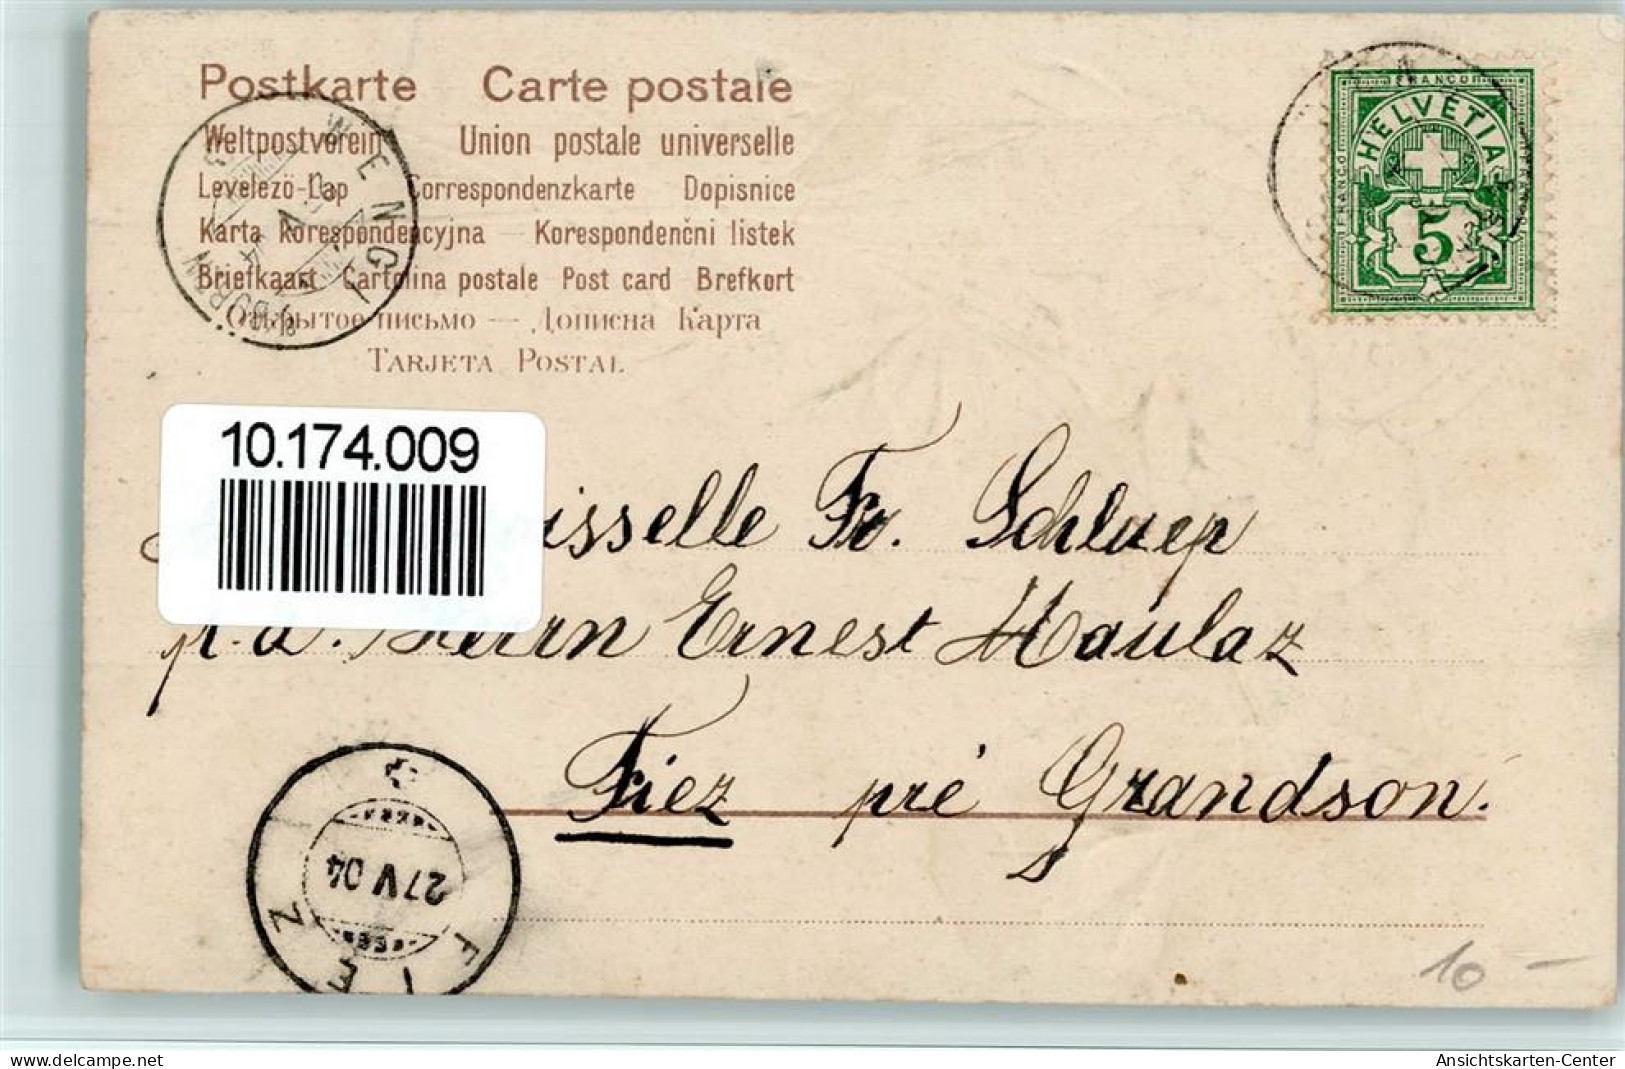 Postkarte Carte postale
Weltpostverein Union postale universelle
Levelezö-Lap Correspondenzkarte Dopisnice
Karta korespondencyjna Korespondenčni listek
Briefkaart Cartolina postale Post card Brefkort
Открытое письмо — Дописна Карта
TARJETA POSTAL
WENGI
FRANCO
HELVETIA
FRANCO
5
10.174.009
isselle Fr. Schluep
p. a. Herrn Ernest Haulaz
Fiez pré Grandson.
27 V 04
FIEZ
10 —
delcampe.net
Ansichtskarten-Center